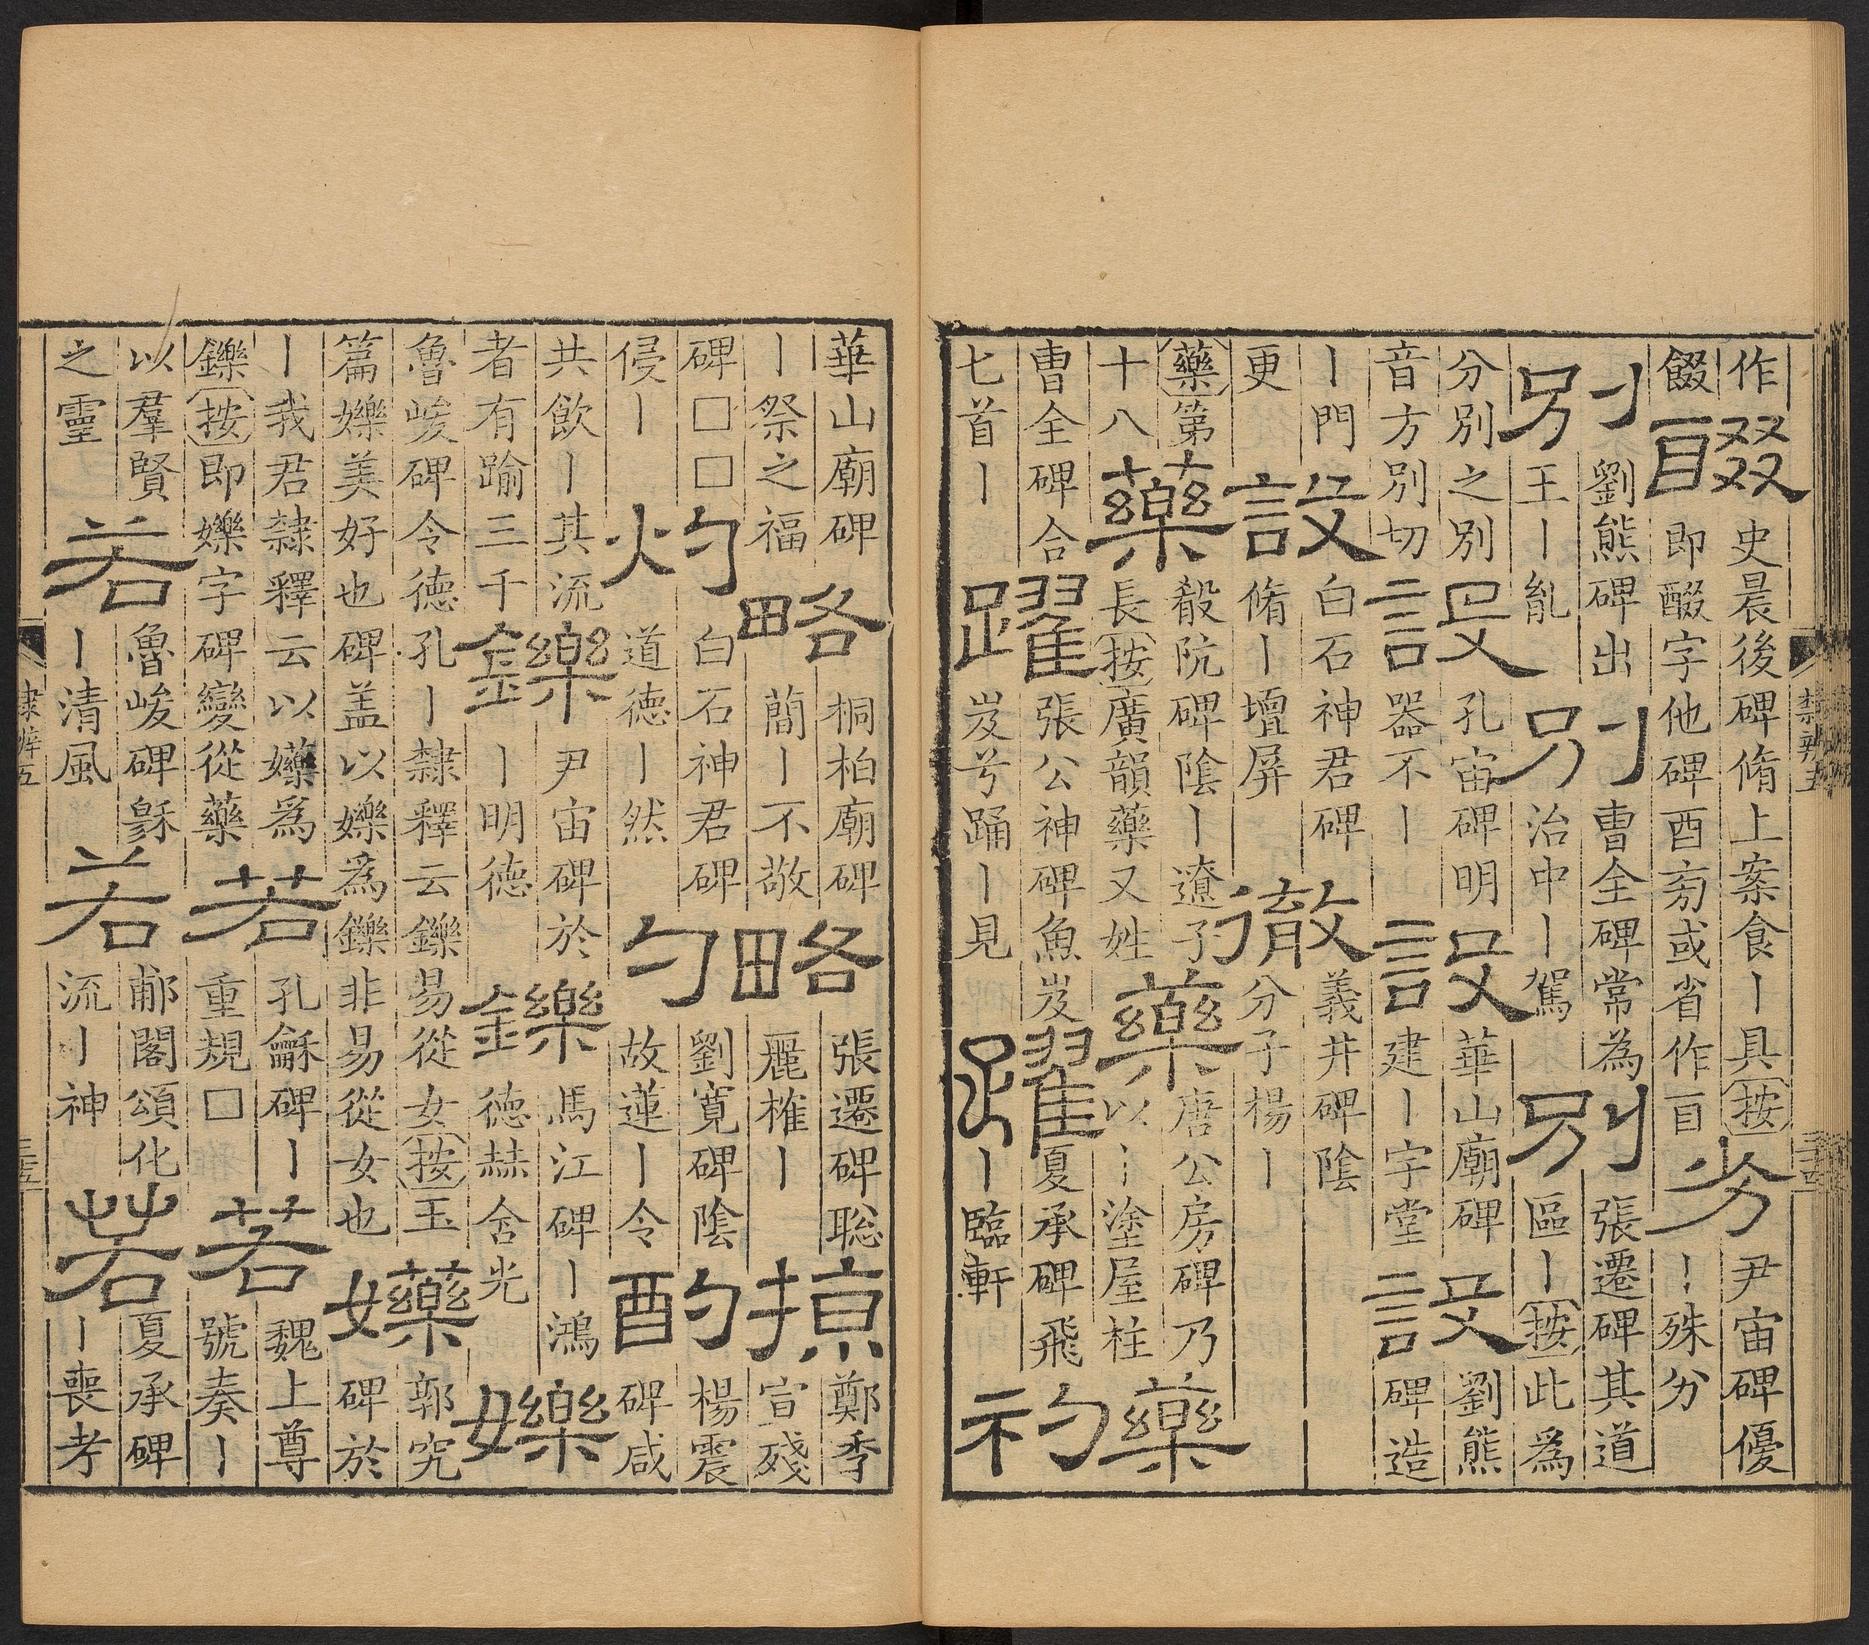 作餟 醊 史晨後碑脩上案食丨具按即醊字他碑酉㫄或省作百 劣 尹宙碑優丨殊分
別 劉熊碑出王丨亂 別 曹全碑常為治中丨駕 別 張遷碑其道區丨按此為
分別之別音方別切 設 孔宙碑明器不丨 設 華山廟碑建丨字堂 設 劉熊碑造
丨門更 設 白石神君碑脩丨壇屏 徹 義井碑陰分子楊丨
藥第十八 藥 殽阬碑陰丨遼子長按廣韻藥又姓 藥 唐公房碑乃以丨塗屋柱 藥
曹全碑合七首丨 躍 張公神碑魚岌岌兮踊丨見 躍 夏承碑飛丨臨軒 礿
隸辨五
華山廟碑丨祭之福 略 桐柏廟碑蕳丨不敬 略 張遷碑聡麗榷丨 掠 鄭季宣殘
碑□□侵丨 灼 白石神君碑道德丨然 勺 劉寬碑陰故蓮丨令 酌 楊震碑咸
共飲丨其流者有踰三千 鑠 尹宙碑於丨明德 鑠 馬江碑丨鴻德赫含光 㜰
魯峻碑令德孔丨隸釋云鑠易從女按玉篇㜰美好也碑盖以㜰為鑠非易從女也 㜰 郭究碑於
丨我君隸釋云以㜰爲鑠按即㜰字碑變從藥 若 孔龢碑丨重規□ 若 魏上尊號奏丨
以羣賢之靈 若 魯峻碑繇丨清風 若 郙閣頌化流丨神 若 夏承碑丨喪考
隸辨五